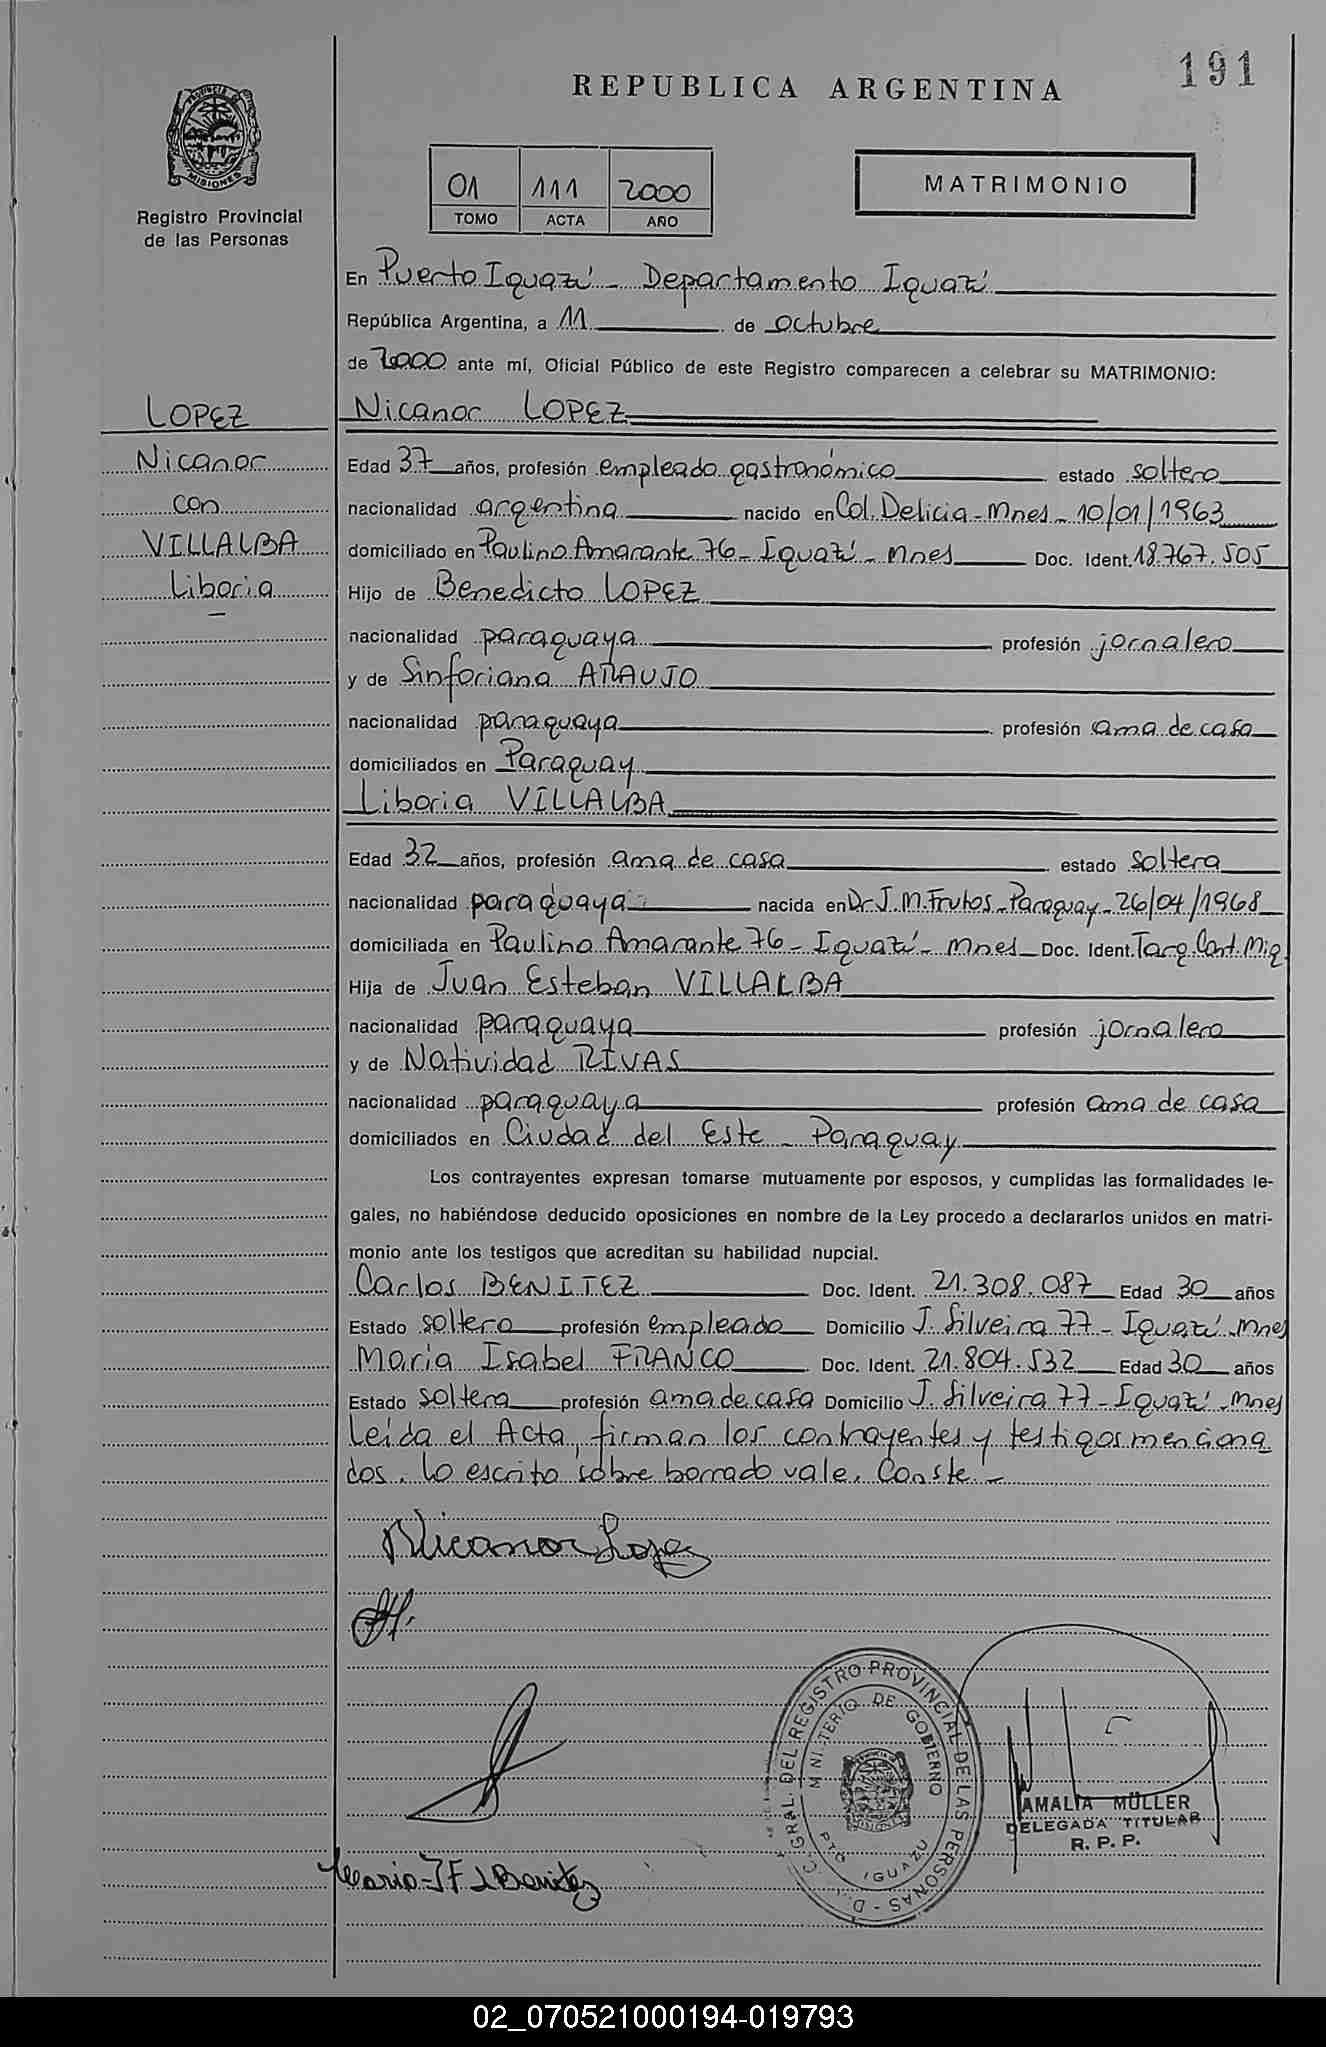 191
REPUBLICA ARGENTINA
PROVINCIA DE
MISIONES
Registro Provincial
de las Personas
01 111 2000
TOMO ACTA AÑO
MATRIMONIO
En Puerto Iguazú - Departamento Iguazú
República Argentina, a 11 de octubre
de 2000 ante mí, Oficial Público de este Registro comparecen a celebrar su MATRIMONIO:
LOPEZ
Nicanor
con
VILLALBA
Liboria
Nicanor LOPEZ
Edad 37 años, profesión empleado gastronómico estado soltero
nacionalidad argentina nacido en Col. Delicia - Mnes - 10/01/1963
domiciliado en Paulino Amarante 76 - Iguazú - Mnes Doc. Ident. 18.767.505
Hijo de Benedicto LOPEZ
nacionalidad paraguaya profesión jornalero
y de Sinforiana ARAUJO
nacionalidad paraguaya profesión ama de casa
domiciliados en Paraguay
Liboria VILLALBA
Edad 32 años, profesión ama de casa estado soltera
nacionalidad paraguaya nacida en Dr. J. M. Frutos - Paraguay - 26/04/1968
domiciliada en Paulino Amarante 76 - Iguazú - Mnes Doc. Ident. Tarq. Cont. Mig.
Hija de Juan Esteban VILLALBA
nacionalidad paraguaya profesión jornalero
y de Natividad RIVAS
nacionalidad paraguaya profesión ama de casa
domiciliados en Ciudad del Este - Paraguay
Los contrayentes expresan tomarse mutuamente por esposos, y cumplidas las formalidades le-
gales, no habiéndose deducido oposiciones en nombre de la Ley procedo a declararlos unidos en matri-
monio ante los testigos que acreditan su habilidad nupcial.
Carlos BENITEZ Doc. Ident. 21.308.087 Edad 30 años
Estado soltero profesión empleado Domicilio J. Silveira 77 - Iguazú - Mnes
María Isabel FRANCO Doc. Ident. 21.804.532 Edad 30 años
Estado soltera profesión ama de casa Domicilio J. Silveira 77 - Iguazú - Mnes
Leída el Acta, firman los contrayentes y testigos menciona
dos. Lo escrito sobre borrado vale. Conste -
Nicanor Lopez
GRAL. DEL REGISTRO PROVINCIAL DE LAS PERSONAS
MINISTERIO DE GOBIERNO
PTO IGUAZU
AMALIA MÜLLER
DELEGADA TITULAR
R. P. P.
02_070521000194-019793